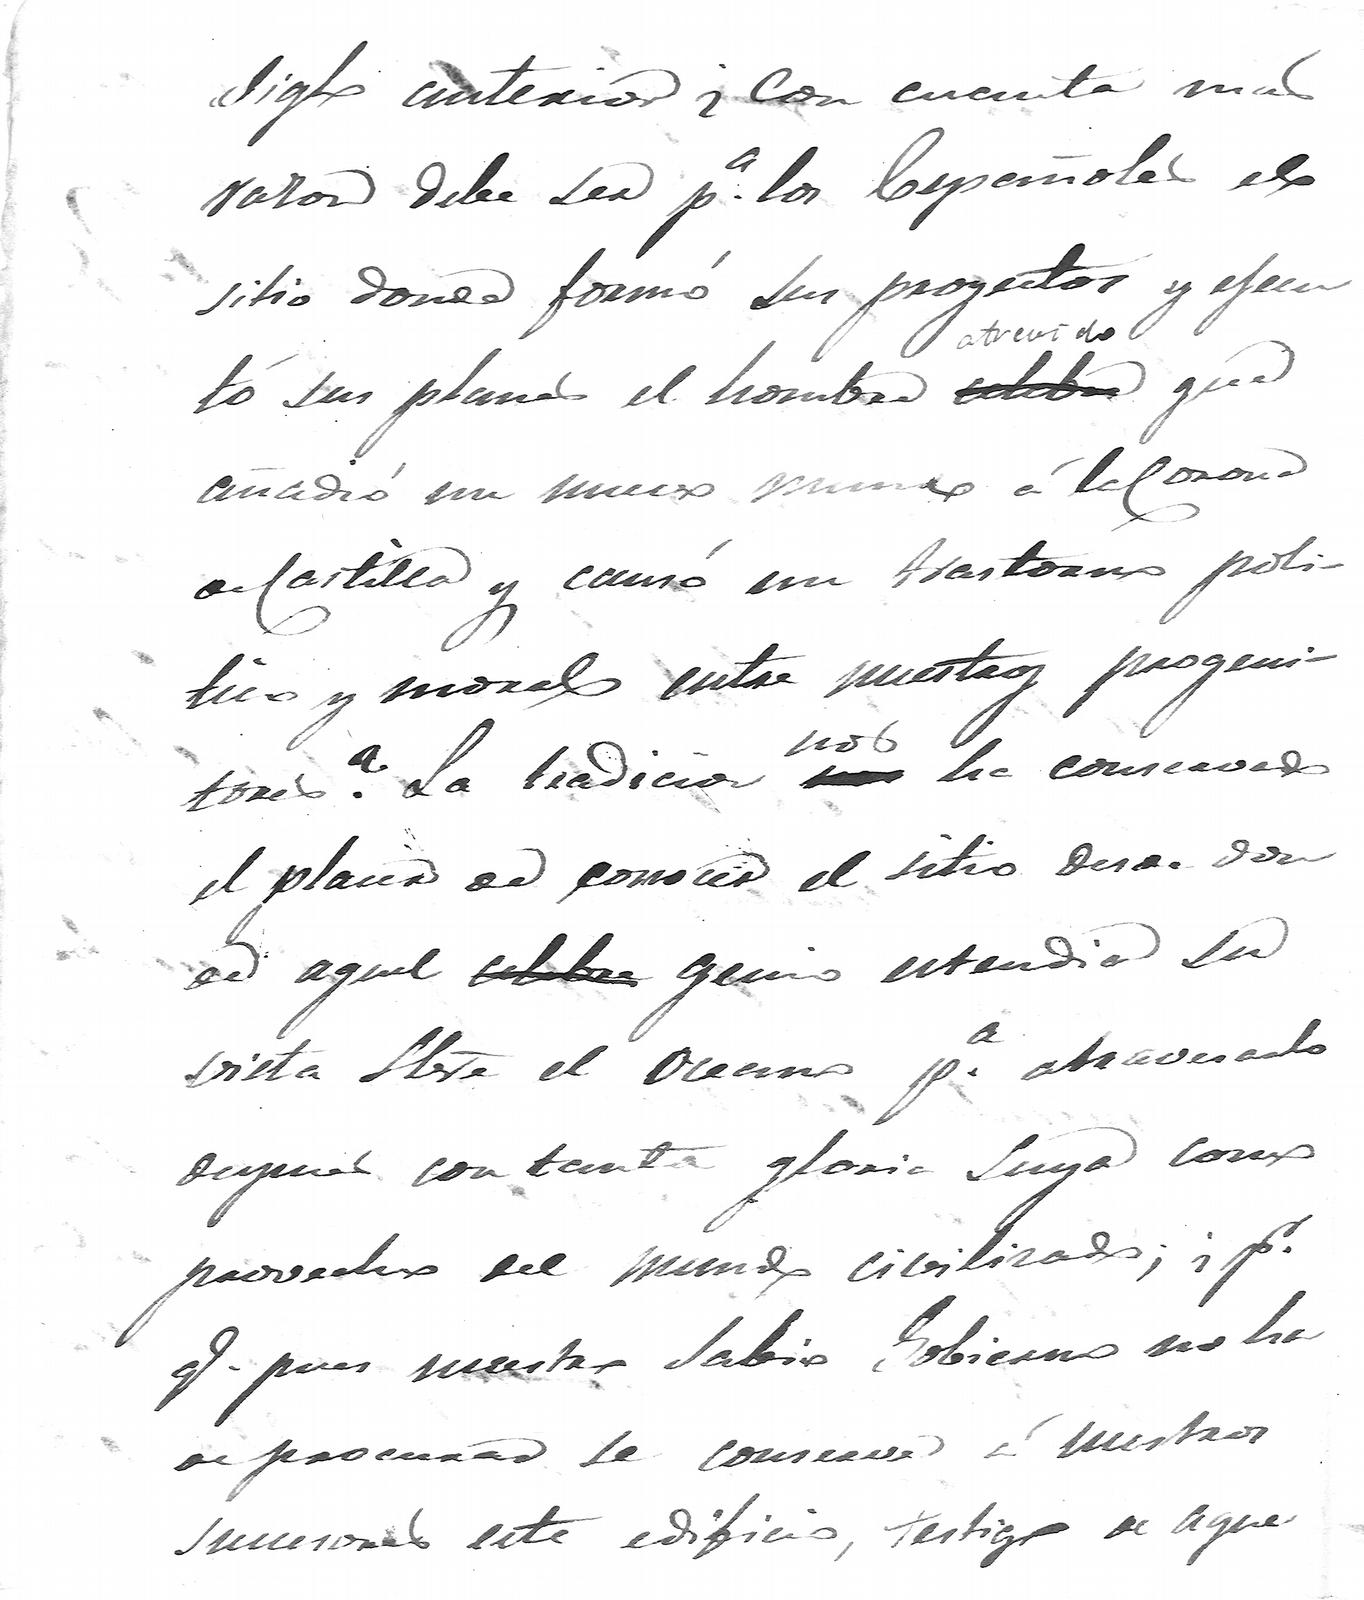 siglo anterior ¿Con cuanta mas
razon debe ser p.ª los Españoles el
sitio donde formó sus proyectos y ejecu
atrevido
tó sus planes el hombre celebre que
añadió un nuevo mundo á la Corona
de Castilla y causó un trastorno poli-
tico y moral entre nuestros progeni-
nos
tores.ª La tradicion nos ha conservado
el placer de conocer el sitio desde don
de aquel celebre genio estendia su
vista sobre el Oceano p.ª atravesarlo
despues con tanta gloria suya como
provecho del mundo civilizado; ¿ p.r
q.e pues nuestro Sabio Gobierno no ha
de procurar se conserve á nuestros
sucesores este edificio, testigo de aque